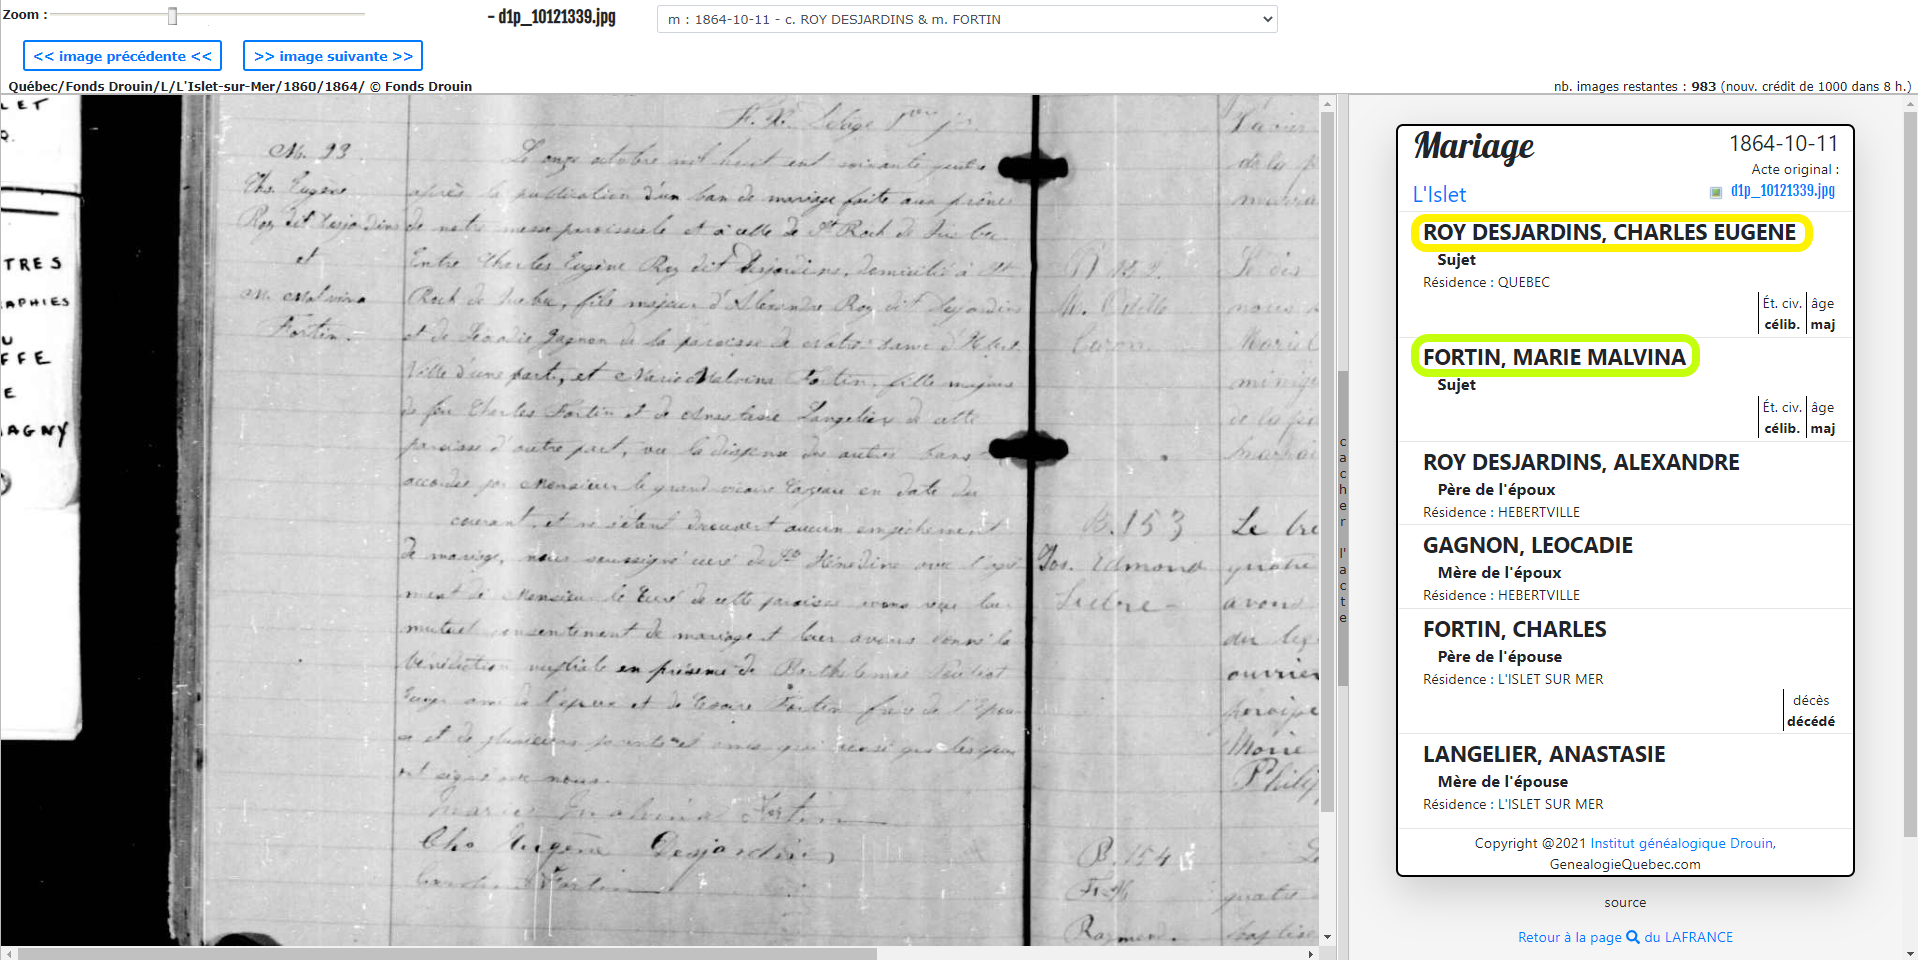 Zoom :
- d1p_10121339.jpg
m : 1864-10-11 - c. ROY DESJARDINS & m. FORTIN
<< image précédente <<
>> image suivante >>
Québec/Fonds Drouin/L/L'Islet-sur-Mer/1860/1864/ © Fonds Drouin
nb. images restantes : 983 (nouv. crédit de 1000 dans 8 h.)
LET
TRES
RAPHIES
U
FFE
E
AGNY
M. 93
Chs. Eugène
Roy dit Desjardins
et
M. Malvina
Fortin.
Le onze octobre mil huit cent soixante quatre
après la publication d'un ban de mariage faite aux prônes
de notre messe paroissiale et à celle de St Roch de Québec
Entre Charles Eugène Roy dit Desjardins, domicilié à St
Roch de Québec, fils majeur d'Alexandre Roy dit Desjardins
et de Léocadie Gagnon de la paroisse de Notre Dame d'Hébert
Ville d'une part, et Marie Malvina Fortin, fille majeure
de feu Charles Fortin et de Anastasie Langelier de cette
paroisse d'autre part, vu la dispense des autres bans
accordée par Monsieur le grand vicaire en date du
courant, et ne s'étant découvert aucun empêchement
de mariage, nous soussigné curé de Ste Hénédine avec l'agré
ment de Monsieur le Curé de cette paroisse avons reçu leur
mutuel consentement de mariage et leur avons donné la
bénédiction nuptiale en présence de Barthelemie Pouliot
Ecuyer ami de l'époux et de Fortin frère de l'épou
se et de plusieurs parents et amis qui ainsi que les époux
ont signé avec nous.
Marie Malvina Fortin
Chs Eugène Desjardins
Fortin
B. 152
M. Odille
Caron
B. 153
Jos. Edmond
B. 154
F. X.
Raymond
Le
quatre
avons
ouvrier
Marie
Philip
cacher l'acte
Mariage
1864-10-11
Acte original :
L'Islet
d1p_10121339.jpg
ROY DESJARDINS, CHARLES EUGENE
Sujet
Résidence : QUEBEC
Ét. civ. âge
célib. maj
FORTIN, MARIE MALVINA
Sujet
Ét. civ. âge
célib. maj
ROY DESJARDINS, ALEXANDRE
Père de l'époux
Résidence : HEBERTVILLE
GAGNON, LEOCADIE
Mère de l'époux
Résidence : HEBERTVILLE
FORTIN, CHARLES
Père de l'épouse
Résidence : L'ISLET SUR MER
décès
décédé
LANGELIER, ANASTASIE
Mère de l'épouse
Résidence : L'ISLET SUR MER
Copyright @2021 Institut généalogique Drouin,
GenealogieQuebec.com
source
Retour à la page du LAFRANCE